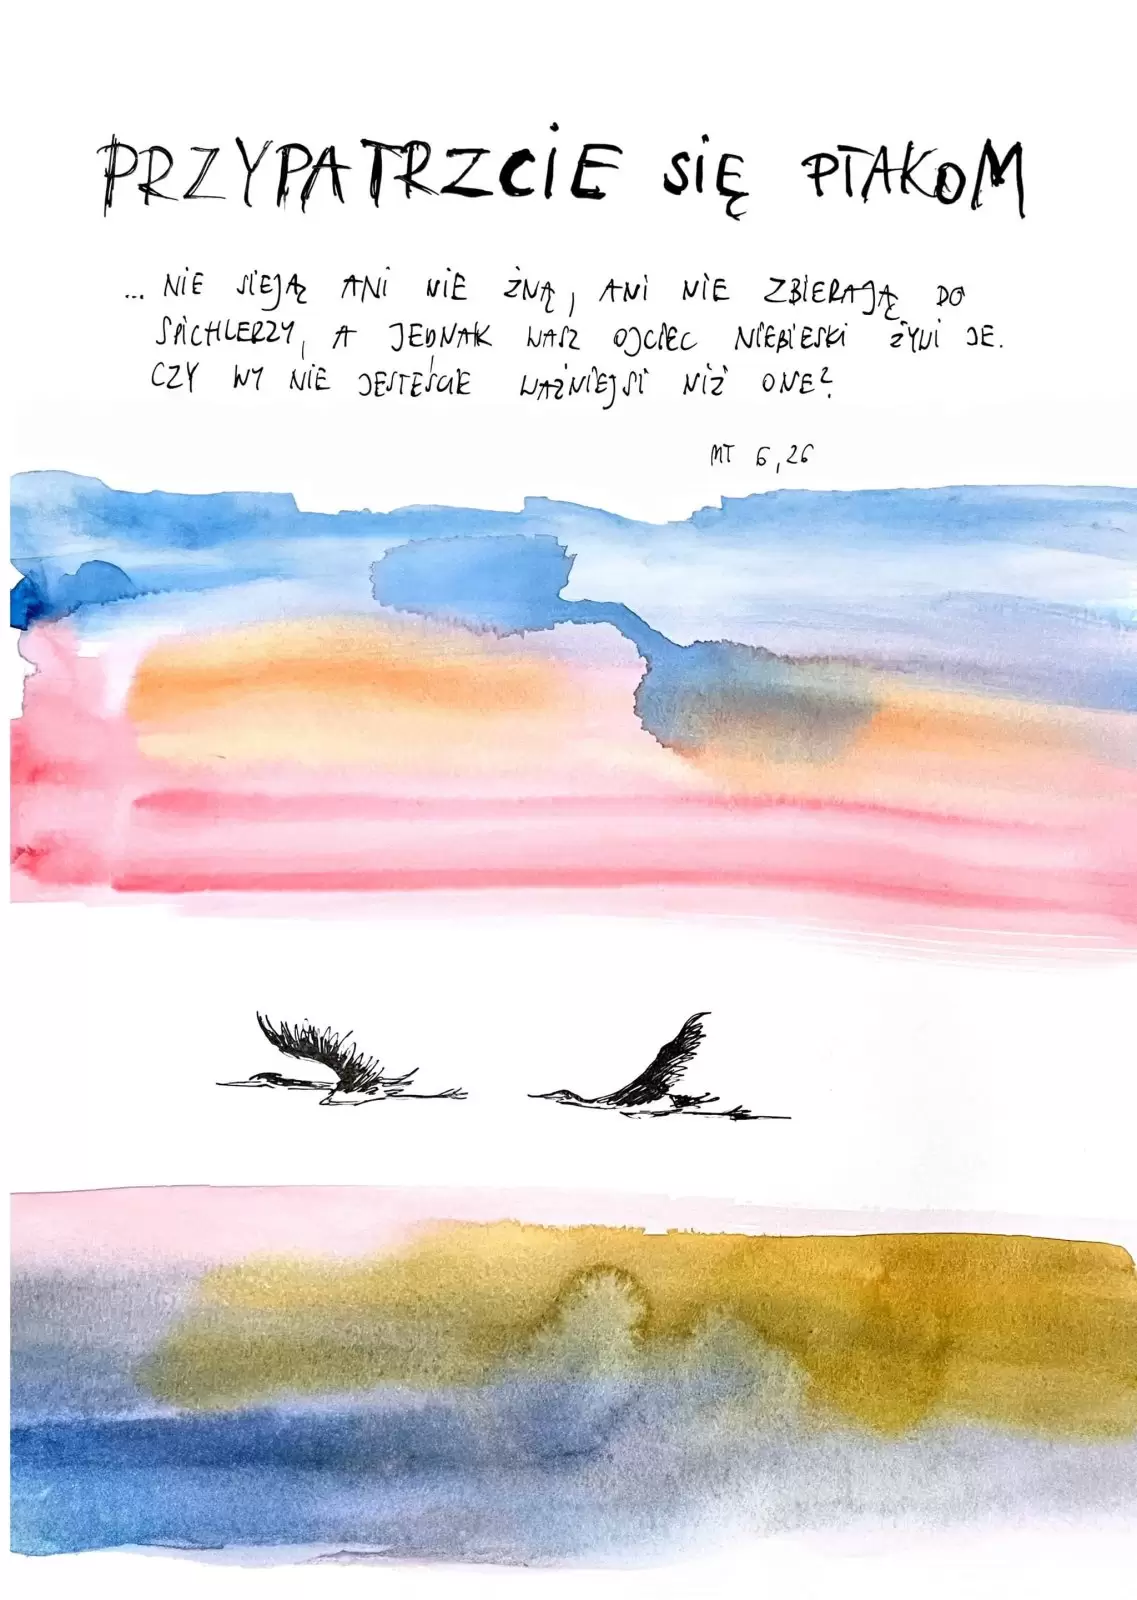 PRZYPATRZCIE SIĘ PTAKOM
... NIE SIEJĄ ANI NIE ŻNĄ, ANI NIE ZBIERAJĄ DO
SPICHLERZY, A JEDNAK WASZ OJCIEC NIEBIESKI ŻYWI JE.
CZY WY NIE JESTEŚCIE WAŻNIEJSI NIŻ ONE?
MT 6,26